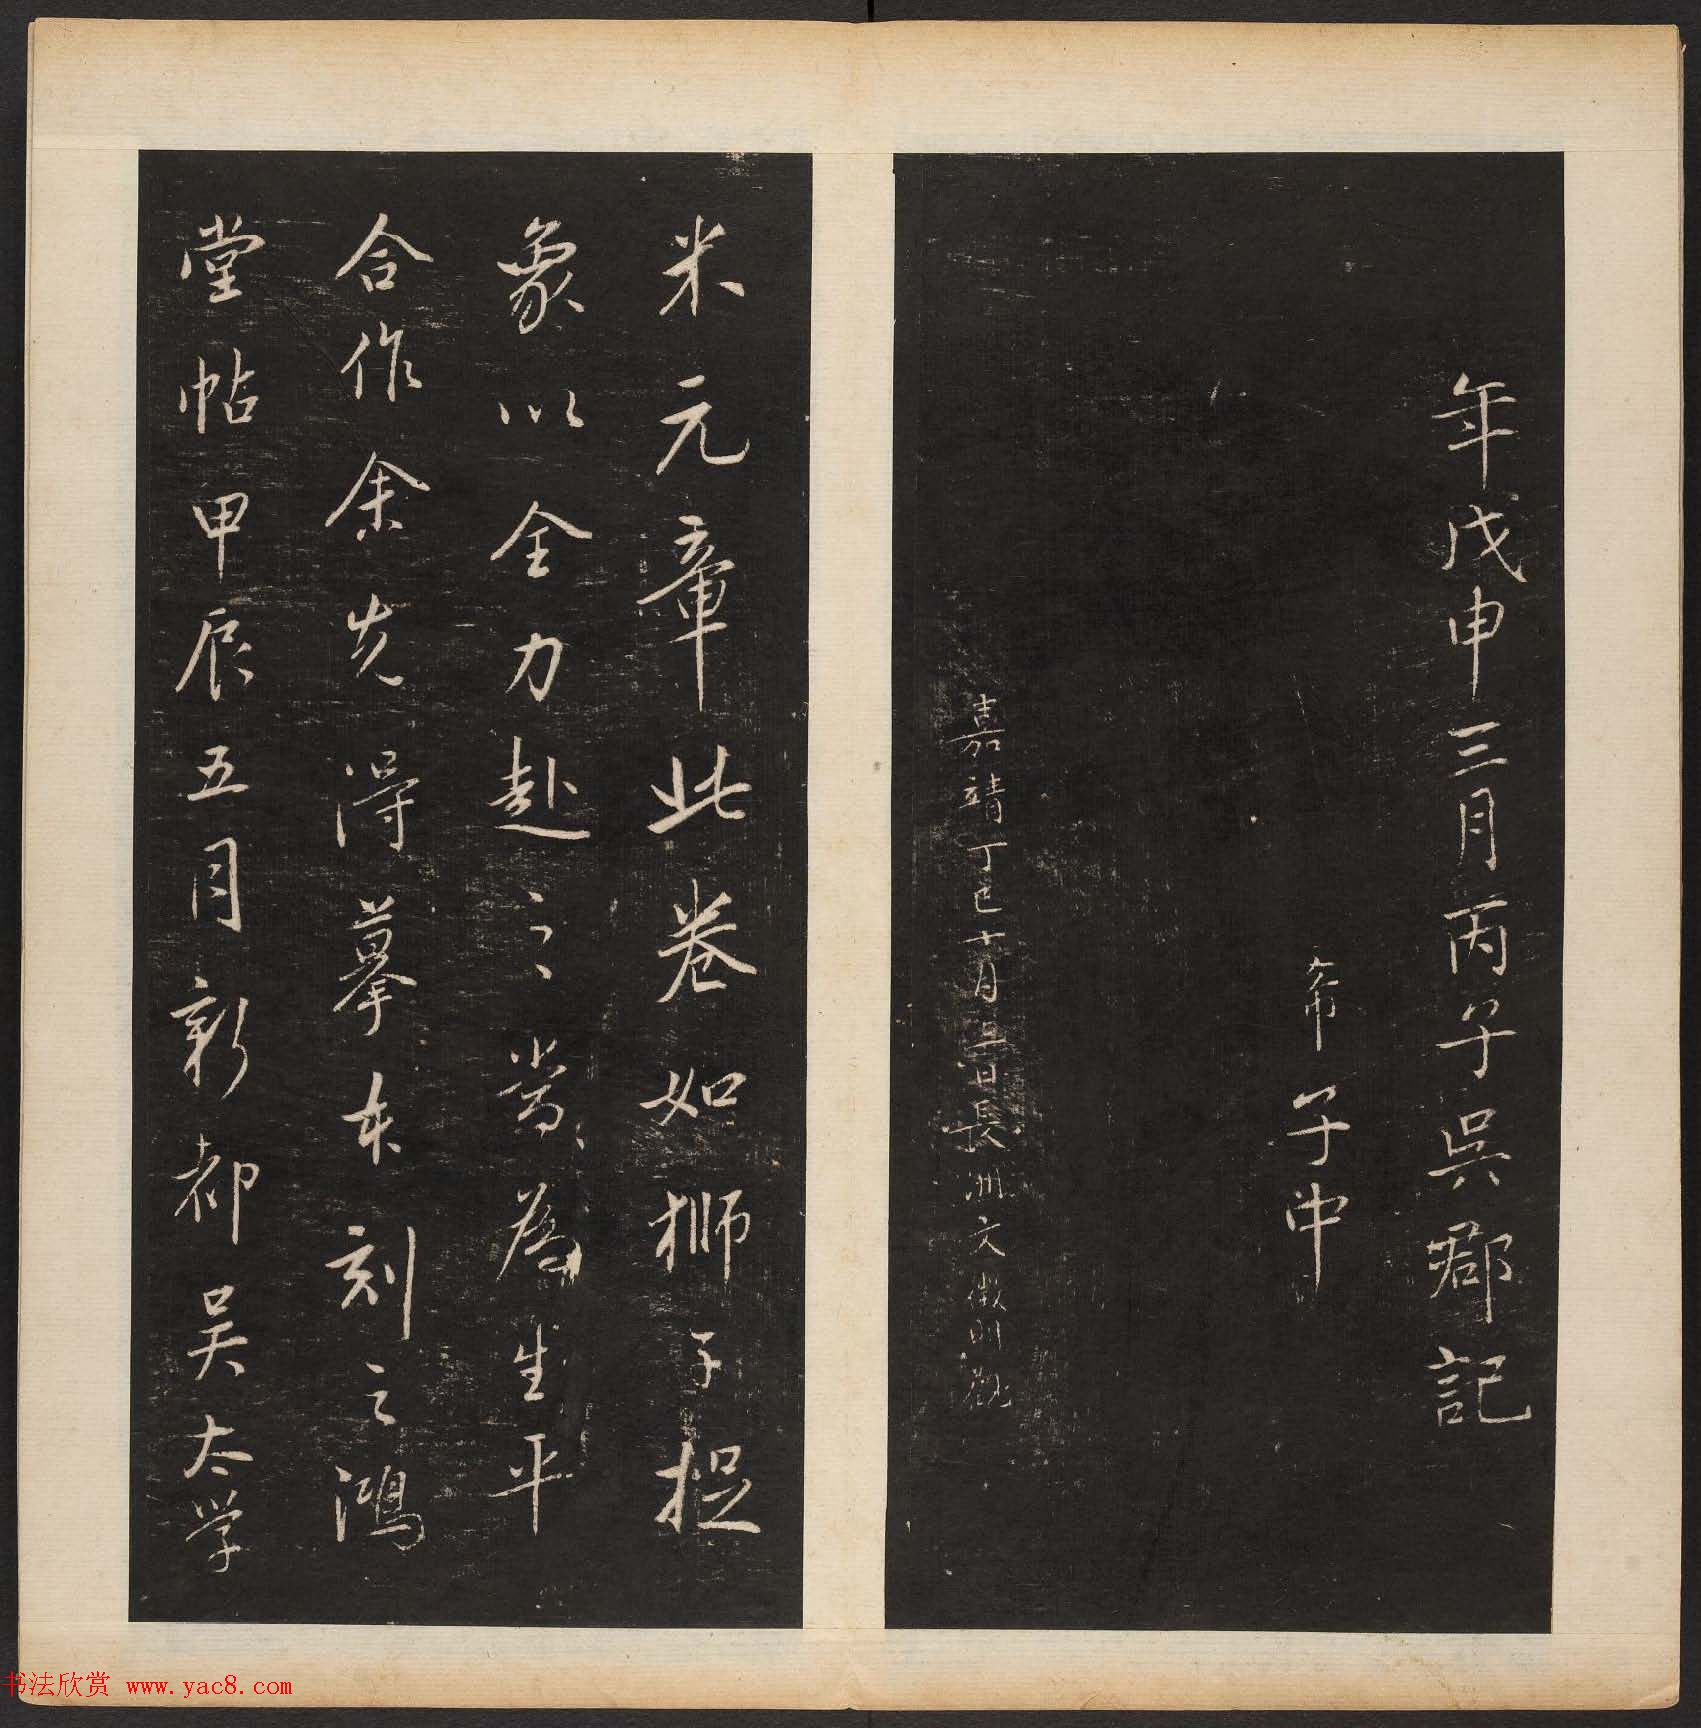 年戊申三月丙子吳郡記
希子中
嘉靖丁巳十月二日長洲文徵明觀
米元章此卷如獅子捉
象以全力赴之當為生平
合作余先得摹本刻之鴻
堂帖甲辰五月新都吳太学
书法欣赏 www.yac8.com